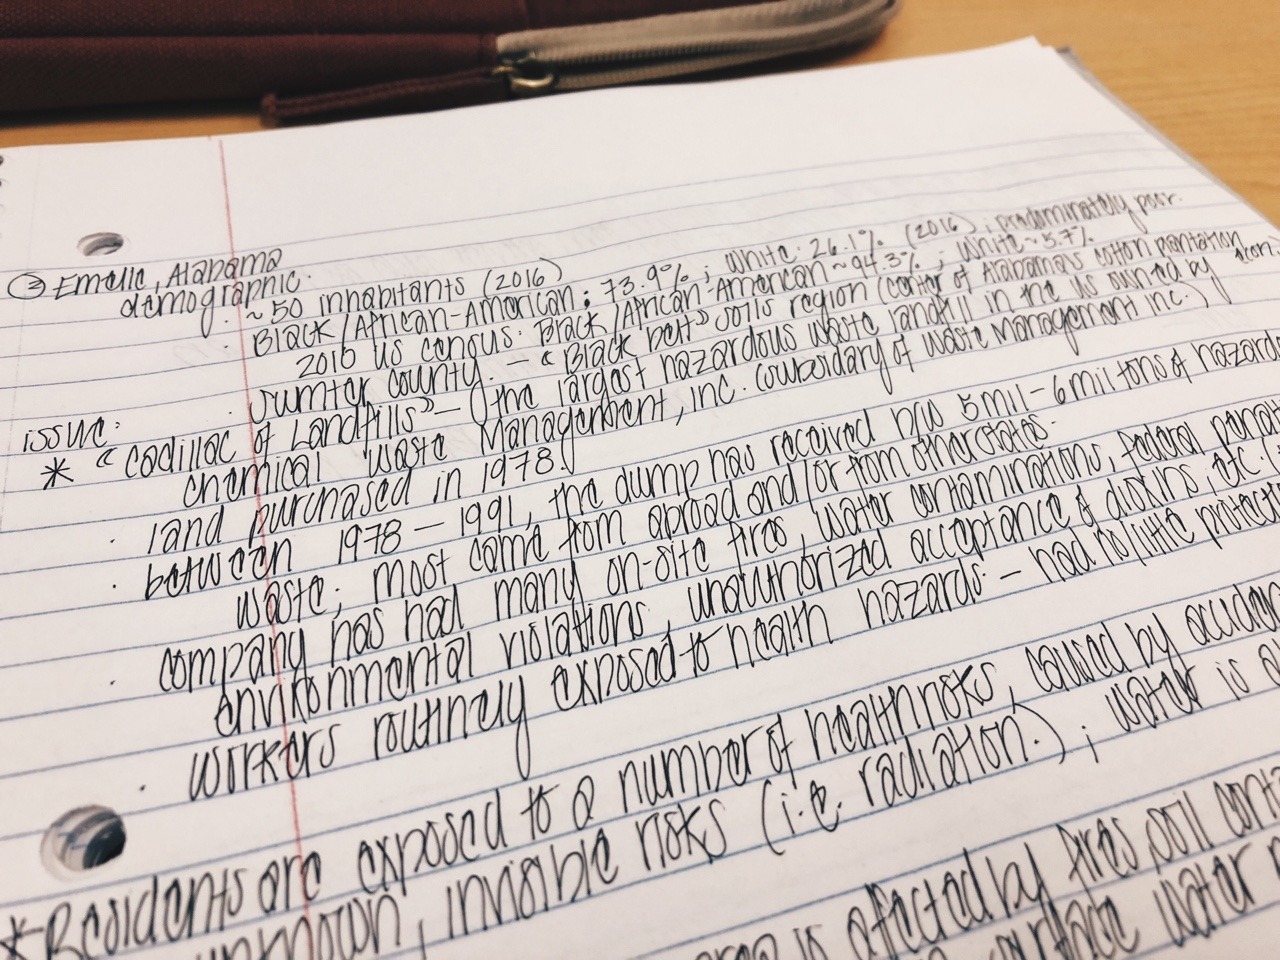 ③ Emelle, Alabama
demographic:
· ~50 inhabitants (2016)
· Black/African-American: 73.9% ; White: 26.1% (2016) ; predominately poor.
2016 US census: Black/African-American ~94.3% ; White ~5.7%
· Sumter county. - "Black belt" soils region (center of Alabama's cotton plantation econ.
issue:
* "Cadillac of Landfills" - (the largest hazardous waste landfill in the US owned by
chemical waste Management, inc. (subsidary of Waste Management Inc.)
· land purchased in 1978.
· between 1978 - 1991, the dump has received has 5mil - 6mil tons of hazard
waste; most came from abroad and/or from other states.
· company has had many on-site fires, water contaminations, federal
environmental violations, unauthorized acceptance of dioxins, etc.
· workers routinely exposed to health hazards - had no/little protect
*Residents are exposed to a number of health risks, caused by
unknown, invisible risks (i.e. radiation.) ; water is
area is affected by fires soil
surface water